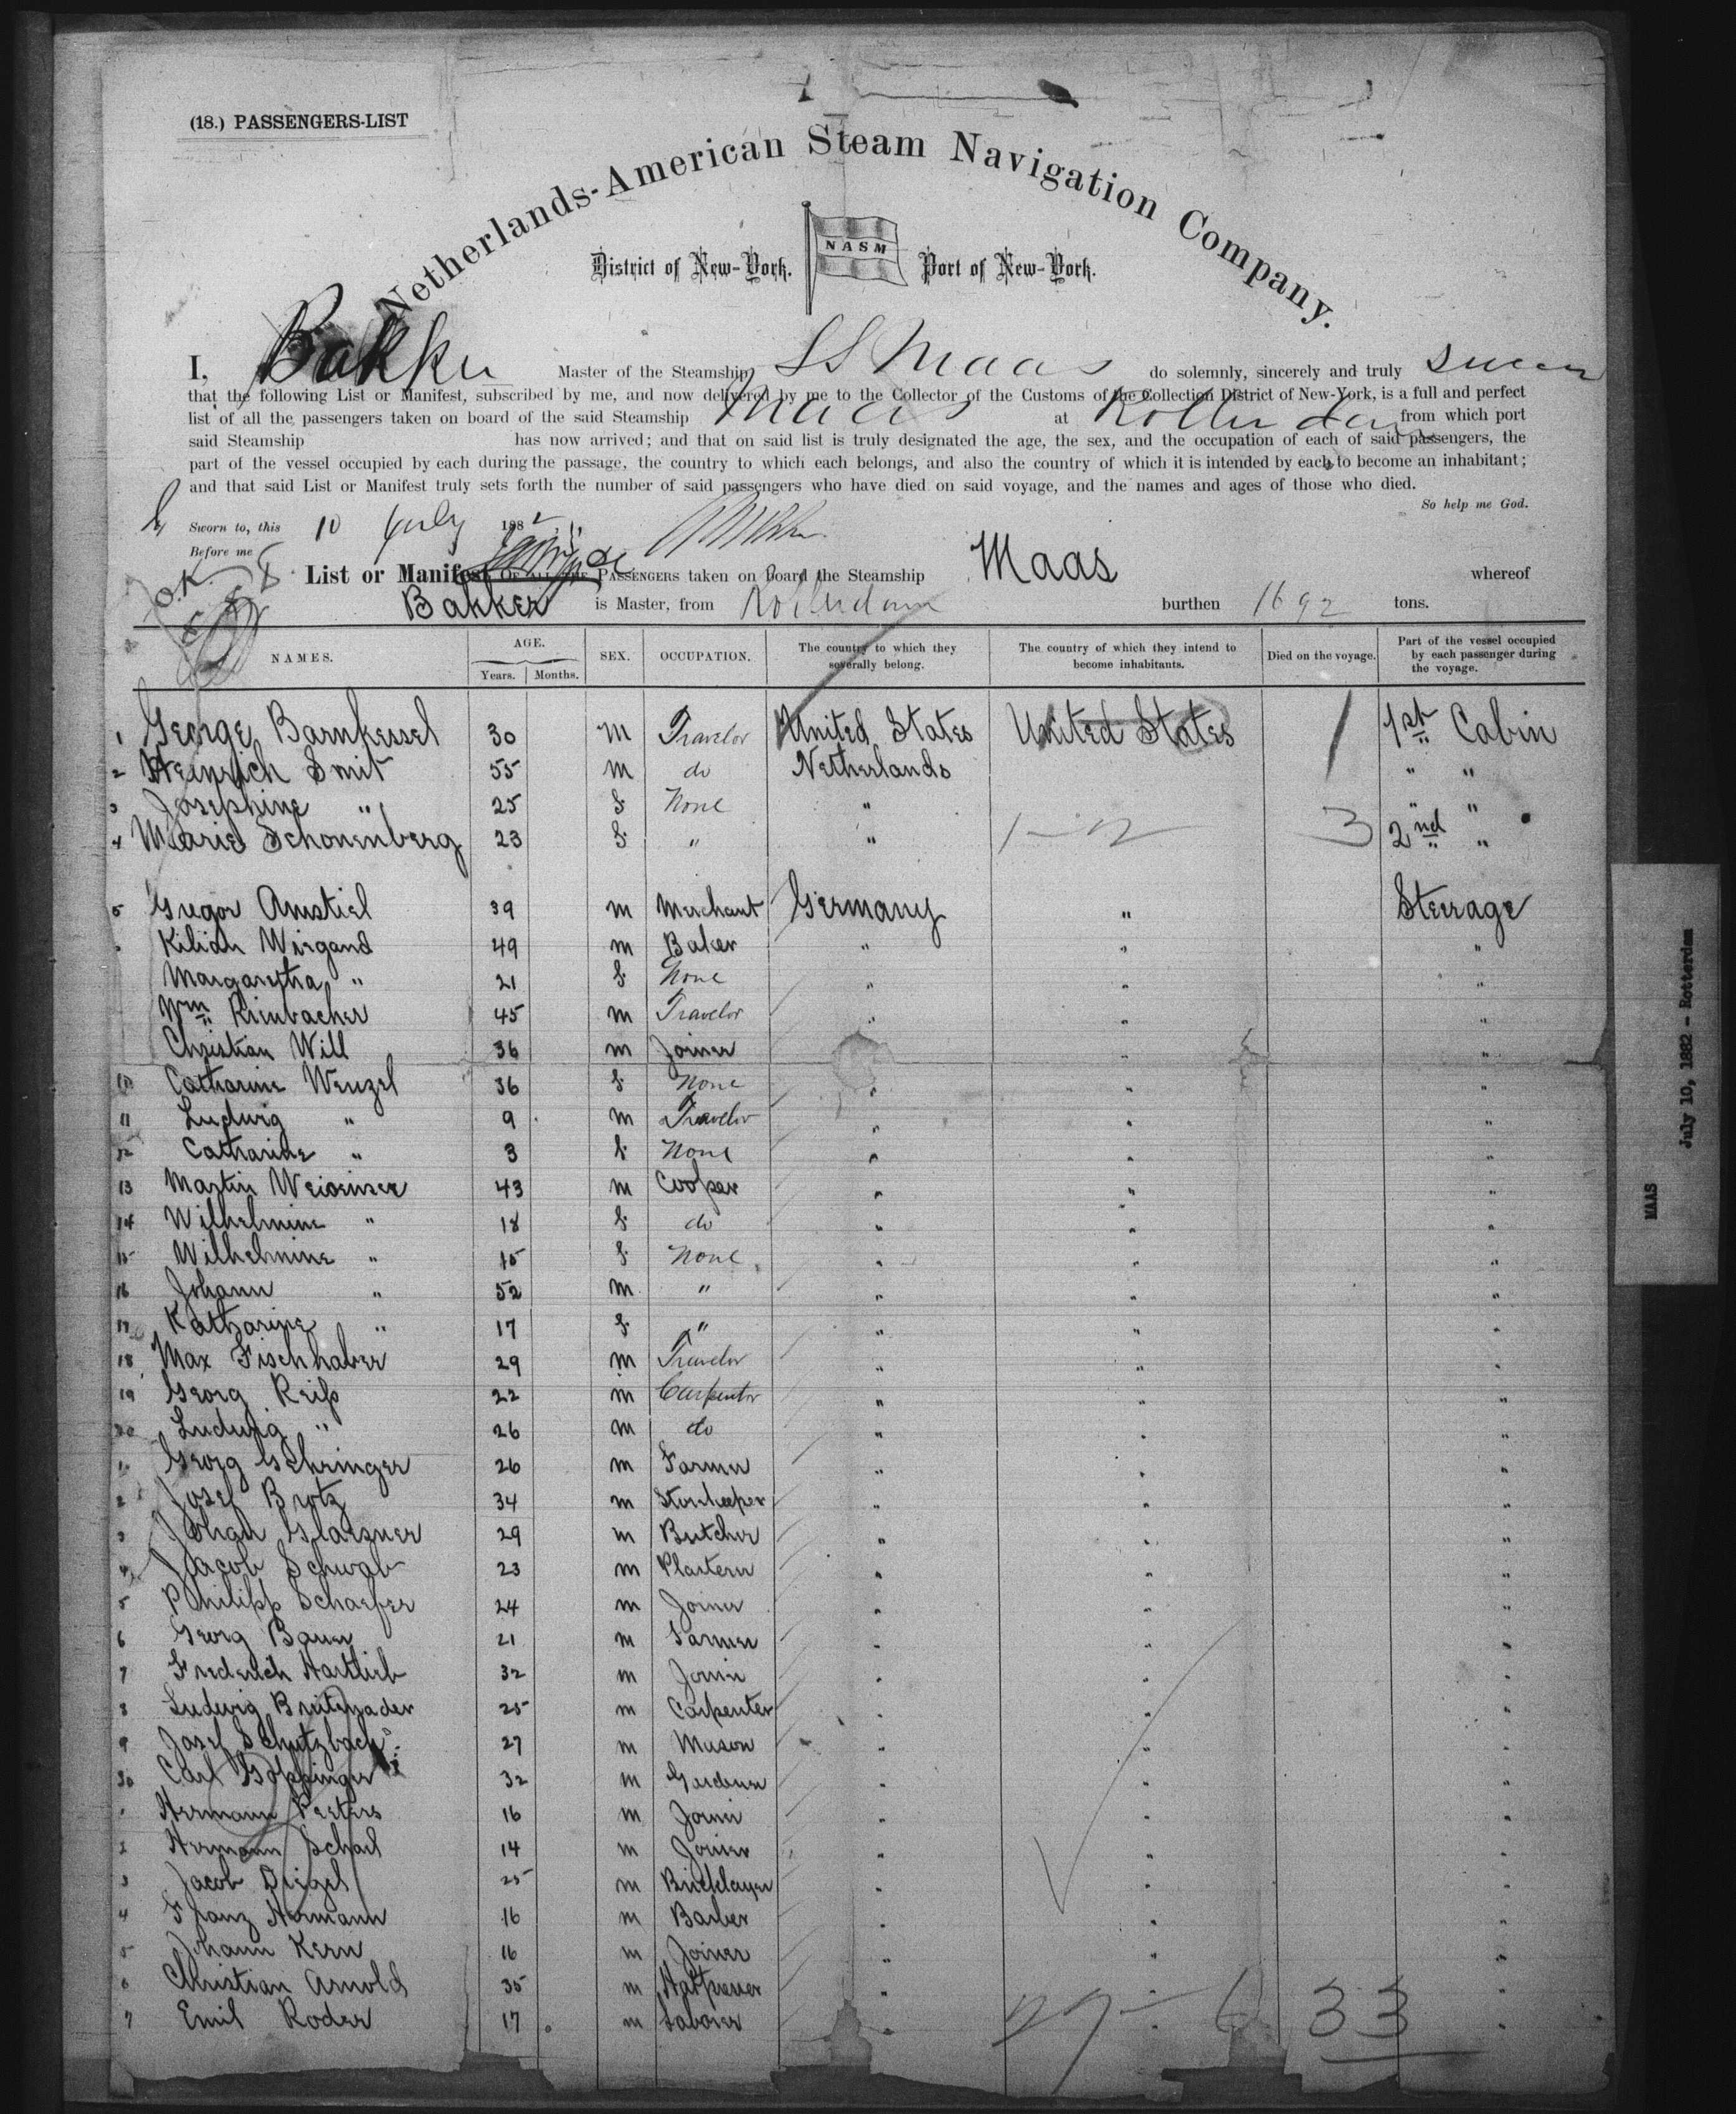 (18.) PASSENGERS-LIST
Netherlands-American Steam Navigation Company.
NASM
District of New-York. Port of New-York.
I, Bakker Master of the Steamship SS Maas do solemnly, sincerely and truly swear
that the following List or Manifest, subscribed by me, and now delivered by me to the Collector of the Customs of the Collection District of New-York, is a full and perfect
list of all the passengers taken on board of the said Steamship Maas at Rotterdam from which port
said Steamship has now arrived; and that on said list is truly designated the age, the sex, and the occupation of each of said passengers, the
part of the vessel occupied by each during the passage, the country to which each belongs, and also the country of which it is intended by each to become an inhabitant;
and that said List or Manifest truly sets forth the number of said passengers who have died on said voyage, and the names and ages of those who died.
So help me God.
Sworn to, this 10 July 1882
Before me
O.K.
List or Manifest OF ALL THE PASSENGERS taken on board the Steamship Maas whereof
Bakker is Master, from Rotterdam burthen 1692 tons.
NAMES. AGE. Years. Months. SEX. OCCUPATION. The country to which they severally belong. The country of which they intend to become inhabitants. Died on the voyage. Part of the vessel occupied by each passenger during the voyage.
1 George Barnkessel 30 m Travelor United States United States 1st Cabin
2 Heinrich Smit 55 m do Netherlands " "
3 Josephine " 25 f None " " "
4 Marie Schonenberg 23 f " " 1-2 3 2nd "
5 Gregor Amstiel 39 m Merchant Germany " Steerage
Kilian Wiegand 49 m Baker " " "
Margaretha " 21 f None " " "
Wm Rimbacher 45 m Travelor " " "
Christian Will 36 m Joiner " " "
10 Catharine Wenzel 36 f None " " "
11 Ludwig " 9 m Travelor " " "
12 Catharine " 3 f None " " "
13 Martin 43 m Cooper " " "
14 Wilhelmine " 18 f do " " "
15 Wilhelmine " 15 f None " " "
16 Johann " 52 m " " " "
17 Katharine " 17 f " " " "
18 Max Fischhaber 29 m Travelor " " "
19 Georg Reiß 22 m Carpentor " " "
20 Ludwig " 26 m do " " "
1 Georg Gehringer 26 m Farmer " " "
2 Josef Brotz 34 m Storekeeper " " "
3 Johan Glaesner 29 m Butcher " " "
4 Jacob Schwab 23 m Plasterer " " "
5 Philipp Schaefer 24 m Joiner " " "
6 Georg Bauer 21 m Farmer " " "
7 Frederich Hartlieb 32 m Joiner " " "
8 Ludwig 25 m Carpenter " " "
9 Josef Schutzbach 27 m Mason " " "
30 Carl Goppinger 32 m Gardener " " "
1 Hermann Peeters 16 m Joiner " " "
2 Hermann Schael 14 m Joiner " " "
3 Jacob Diegel 25 m Bricklayer " " "
4 Franz Hermann 16 m Barber " " "
5 Johann Kern 16 m Joiner " " "
6 Christian Arnold 35 m " " "
7 Emil Roder 17 m Laborer " 27-6 33 "
MAAS July 10, 1882 - Rotterdam